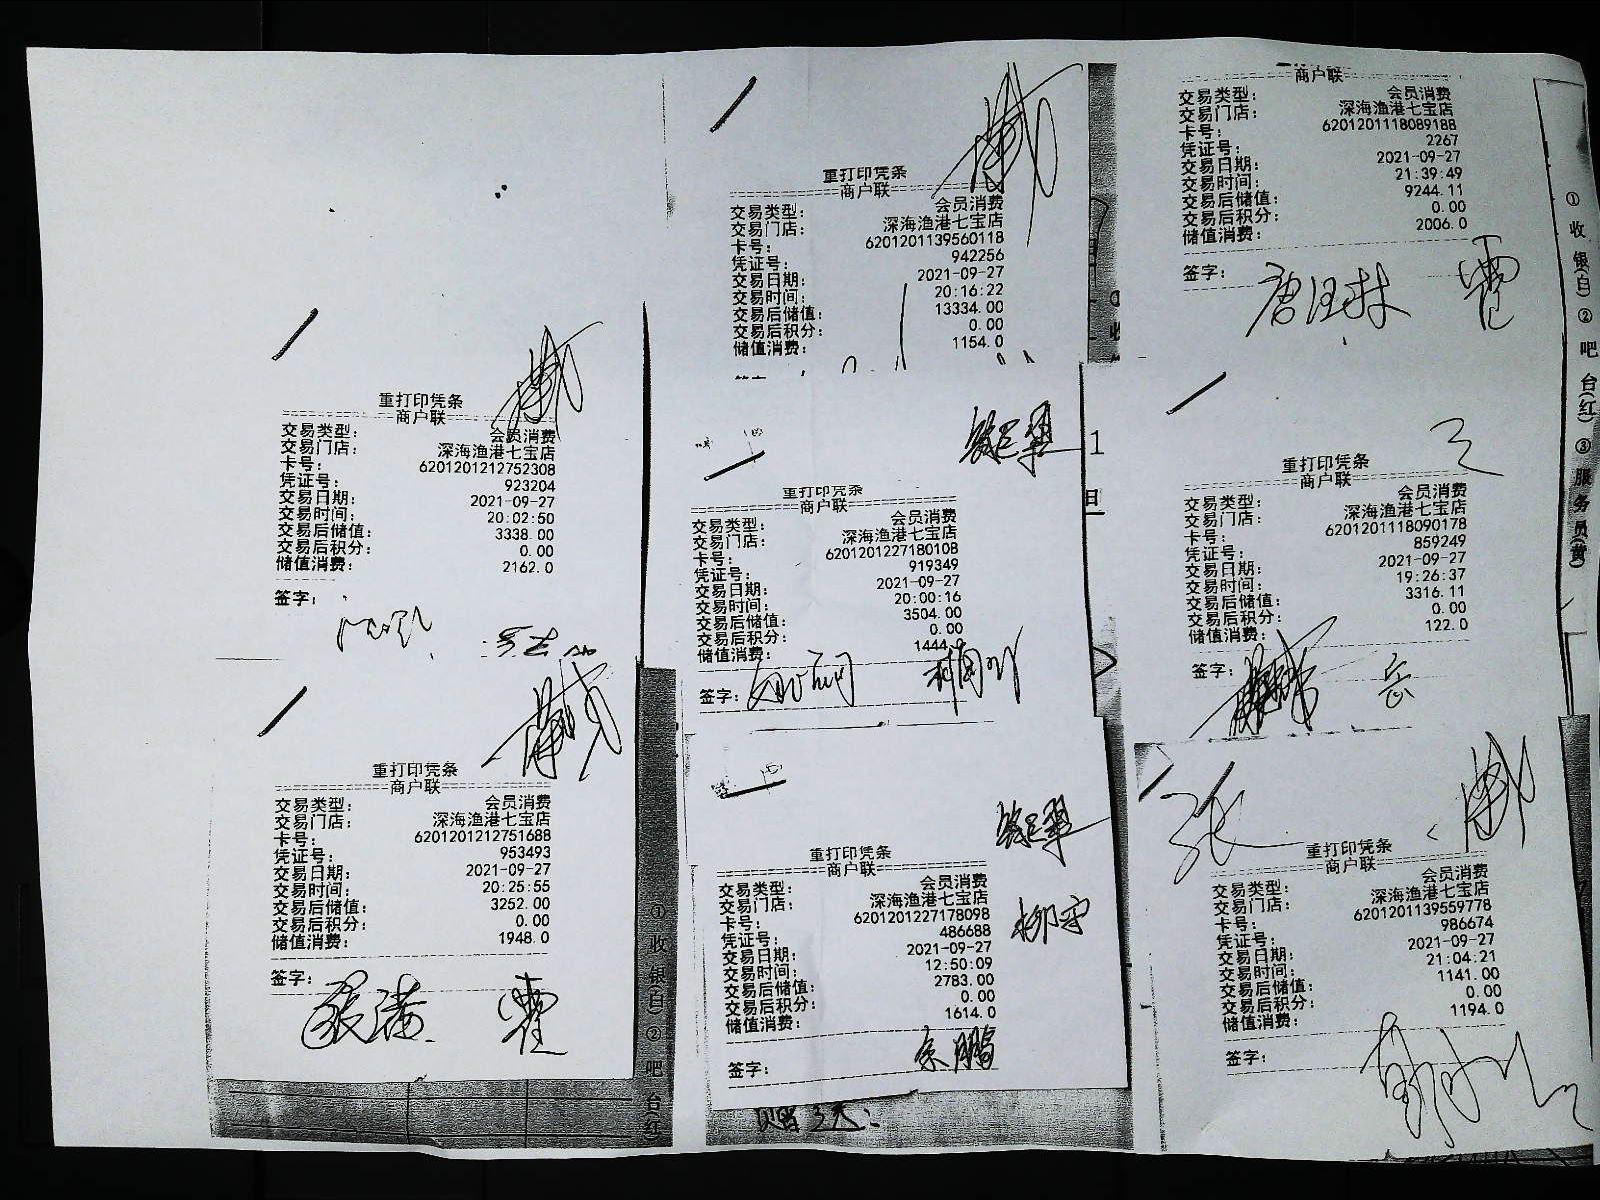 重打印凭条
商户联
交易类型： 会员消费
交易门店： 深海渔港七宝店
卡号： 6201201212752308
凭证号： 923204
交易日期： 2021-09-27
交易时间： 20:02:50
交易后储值： 3338.00
交易后积分： 0.00
储值消费： 2162.0
签字：
重打印凭条
商户联
交易类型： 会员消费
交易门店： 深海渔港七宝店
卡号： 6201201212751688
凭证号： 953493
交易日期： 2021-09-27
交易时间： 20:25:55
交易后储值： 3252.00
交易后积分： 0.00
储值消费： 1948.0
签字：
①收银(白)②吧台(红)
重打印凭条
商户联
交易类型： 会员消费
交易门店： 深海渔港七宝店
卡号： 6201201139560118
凭证号： 942256
交易日期： 2021-09-27
交易时间： 20:16:22
交易后储值： 13334.00
交易后积分： 0.00
储值消费： 1154.0
重打印凭条
商户联
交易类型： 会员消费
交易门店： 深海渔港七宝店
卡号： 6201201227180108
凭证号： 919349
交易日期： 2021-09-27
交易时间： 20:00:16
交易后储值： 3504.00
交易后积分： 0.00
储值消费： 1444.0
签字：
重打印凭条
商户联
交易类型： 会员消费
交易门店： 深海渔港七宝店
卡号： 6201201227178098
凭证号： 486688
交易日期： 2021-09-27
交易时间： 12:50:09
交易后储值： 2783.00
交易后积分： 0.00
储值消费： 1614.0
签字： 余鹏
商户联
交易类型： 会员消费
交易门店： 深海渔港七宝店
卡号： 6201201118089188
凭证号： 2267
交易日期： 2021-09-27
交易时间： 21:39:49
交易后储值： 9244.11
交易后积分： 0.00
储值消费： 2006.0
签字：
重打印凭条
商户联
交易类型： 会员消费
交易门店： 深海渔港七宝店
卡号： 6201201118090178
凭证号： 859249
交易日期： 2021-09-27
交易时间： 19:26:37
交易后储值： 3316.11
交易后积分： 0.00
储值消费： 122.0
签字：
张
重打印凭条
商户联
交易类型： 会员消费
交易门店： 深海渔港七宝店
卡号： 6201201139559778
凭证号： 986674
交易日期： 2021-09-27
交易时间： 21:04:21
交易后储值： 1141.00
交易后积分： 0.00
储值消费： 1194.0
签字：
①收银(白)②吧台(红)③服务员(黄)